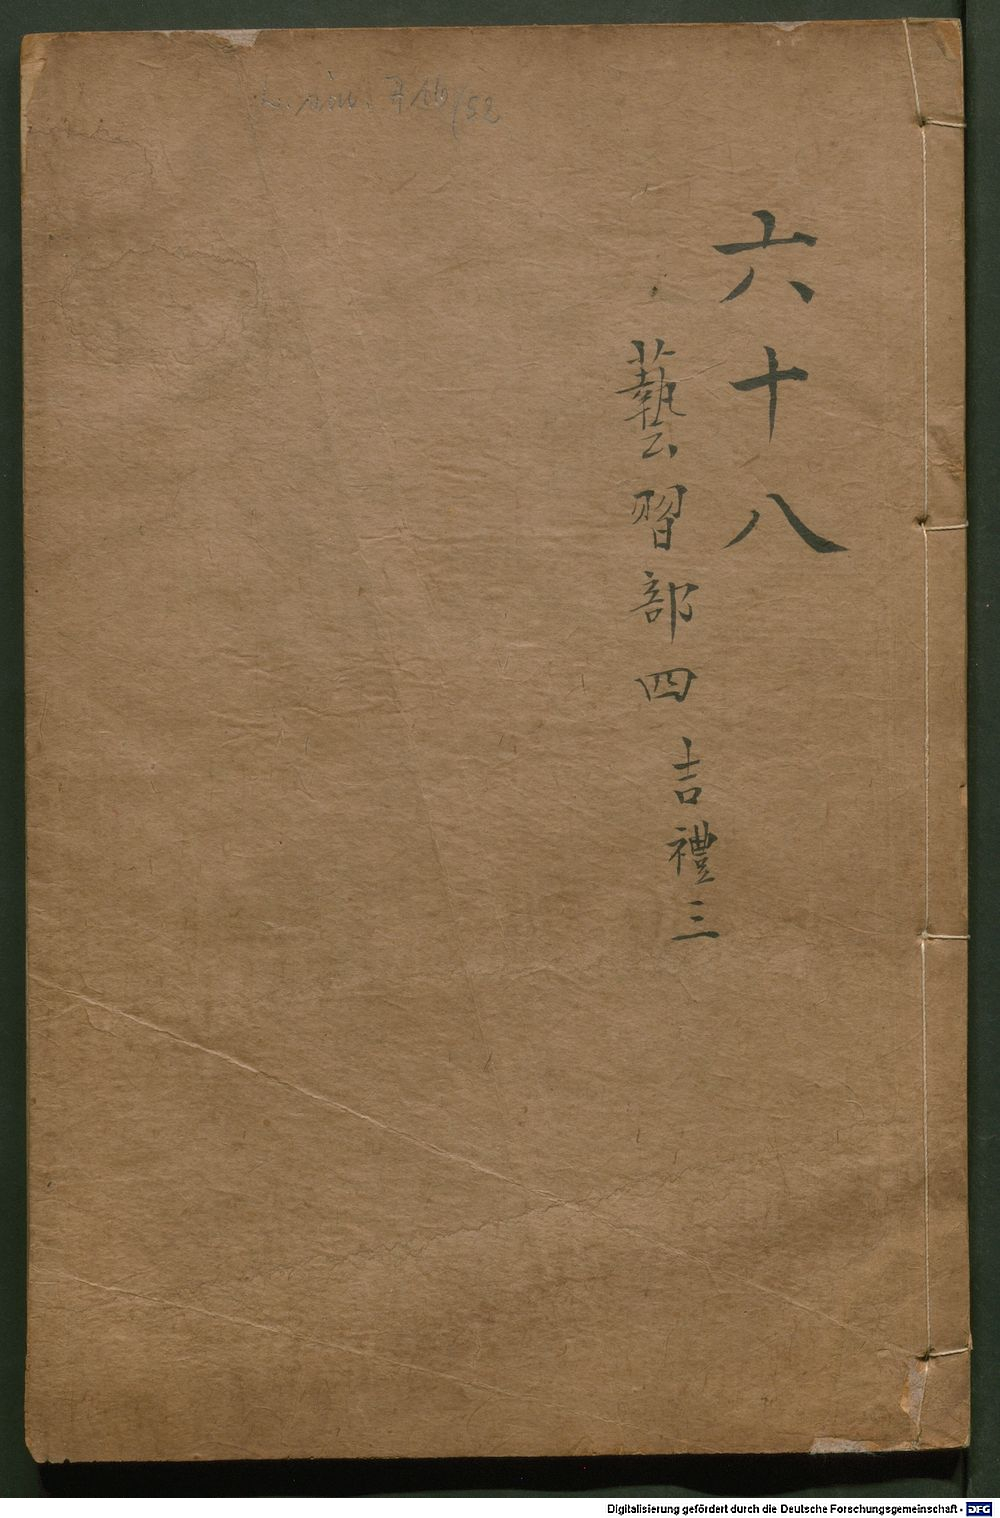 L. sin. F 16/52
六十八
藝習部四
吉禮三
Digitalisierung gefördert durch die Deutsche Forschungsgemeinschaft - DFG